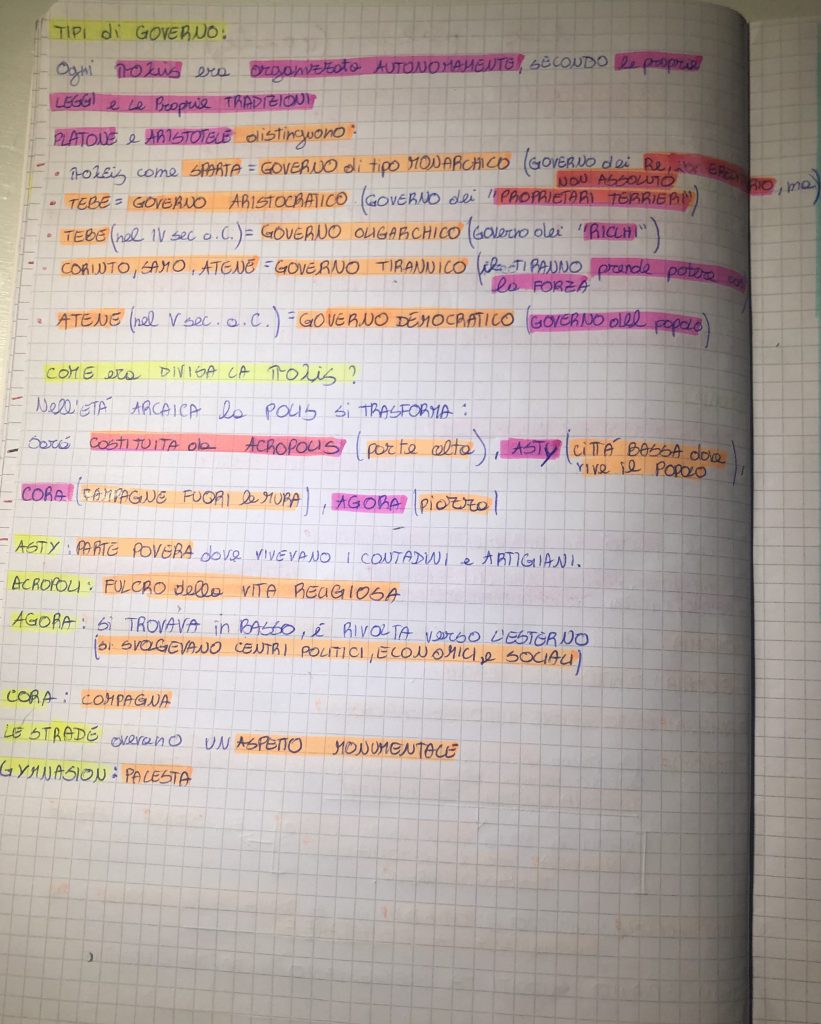 TIPI di GOVERNO:
Ogni πολις era organizzata AUTONOMAMENTE, SECONDO le proprie
LEGGI e Le Proprie TRADIZIONI
PLATONE e ARISTOTELE distinguono:
• πολεις come SPARTA = GOVERNO di tipo MONARCHICO (GOVERNO dei Re, EREDITARIO, ma
NON ASSOLUTO)
• TEBE = GOVERNO ARISTOCRATICO (GOVERNO dei "PROPRIETARI TERRIERI")
• TEBE (nel IV sec a.C.) = GOVERNO OLIGARCHICO (Governo dei "RICCHI")
• CORINTO, SAMO, ATENE = GOVERNO TIRANNICO (il TIRANNO prende potere con
la FORZA)
• ATENE (nel V sec. a.C.) = GOVERNO DEMOCRATICO (GOVERNO del popolo)
COME era DIVISA LA πολις?
Nell'ETÁ ARCAICA la POLIS si TRASFORMA:
Sará COSTITUITA da ACROPOLIS (parte alta), ASTY (CITTÁ BASSA dove
vive il POPOLO),
CORA (CAMPAGNE FUORI le MURA), AGORA (piazza)
ASTY: PARTE POVERA dove VIVEVANO I CONTADINI e ARTIGIANI.
ACROPOLI: FULCRO della VITA RELIGIOSA
AGORA: SI TROVAVA in BASSO, é RIVOLTA verso L'ESTERNO
(si SVOLGEVANO CENTRI POLITICI, ECONOMICI e SOCIALI)
CORA: COMPAGNA
LE STRADE avevano UN ASPETTO MONUMENTALE
GYMNASION: PALESTA